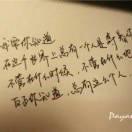 我要你知道
在这个世界上总有一个人是等着你的
不管在什么时候，不管在什么地方
反正你知道，总有这么个人